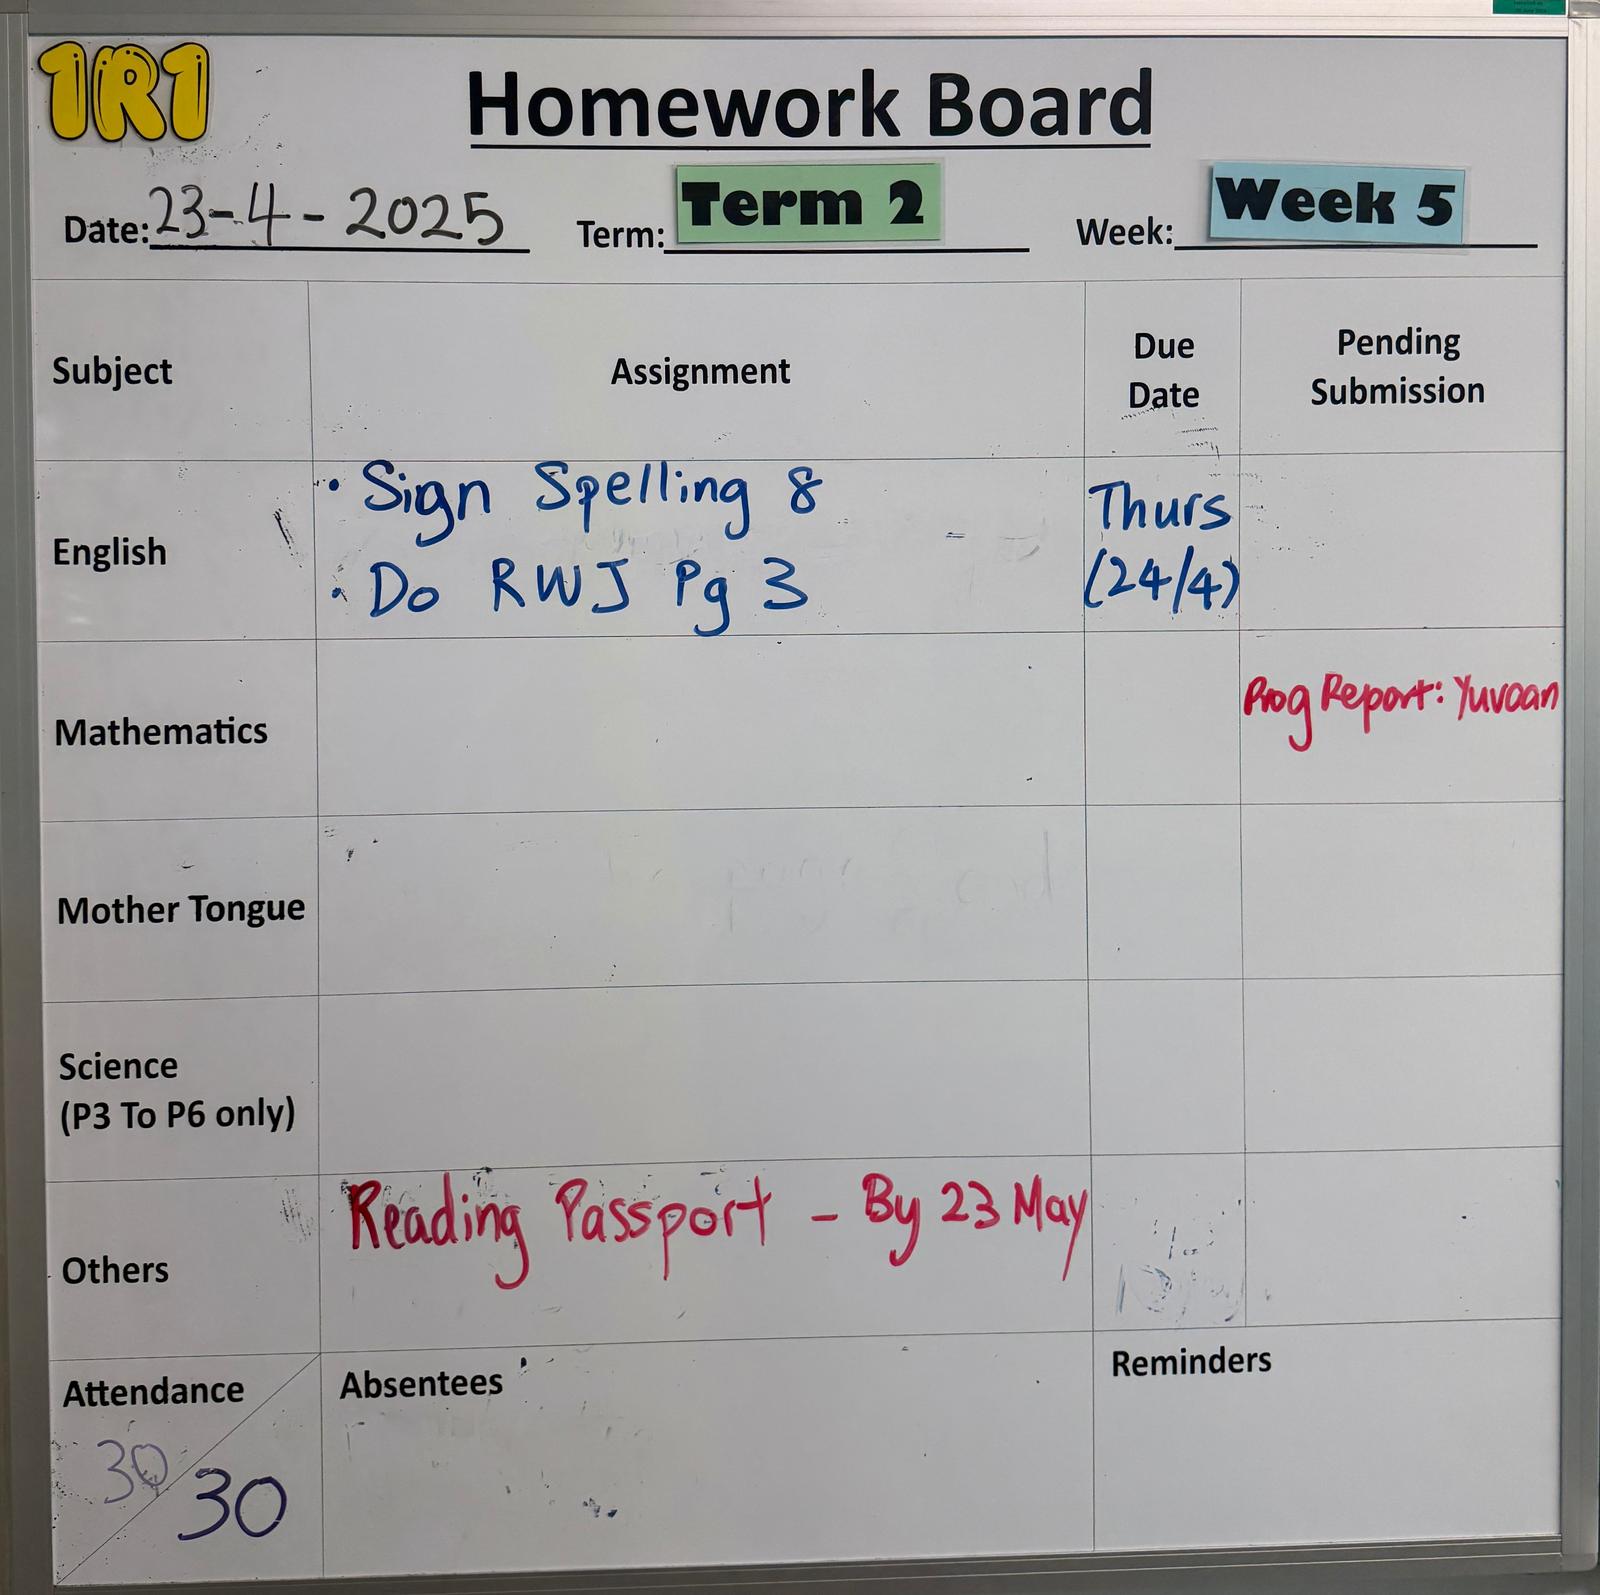 1R1
Homework Board
Date: 23-4-2025 Term: Term 2 Week: Week 5
Subject
Assignment
Due
Date
Pending
Submission
English
• Sign Spelling 8
• Do RWJ Pg 3
Thurs
(24/4)
Mathematics
Prog Report: Yuvaan
Mother Tongue
Science
(P3 To P6 only)
Others
Reading Passport - By 23 May
Attendance
30
30
Absentees
Reminders